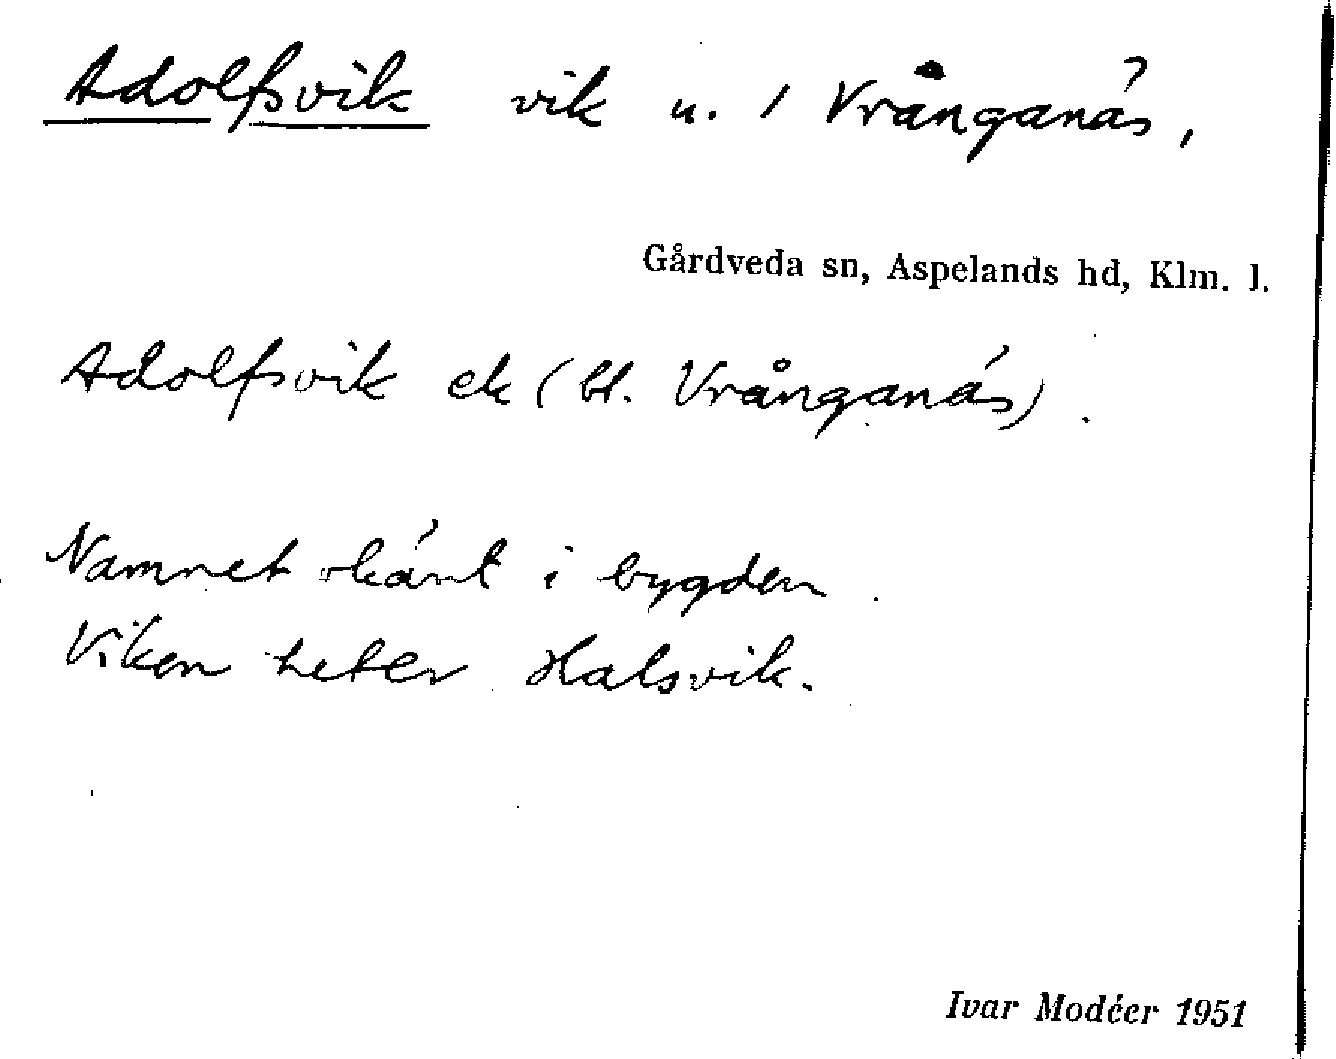 Adolfsvik vik u. 1 Vrånganäs,
Gårdveda sn, Aspelands hd, Klm. l.
Adolfsvik ek (bl. Vrånganäs).
Namnet okänt i bygden.
Viken heter Halsvik.
Ivar Modéer 1951